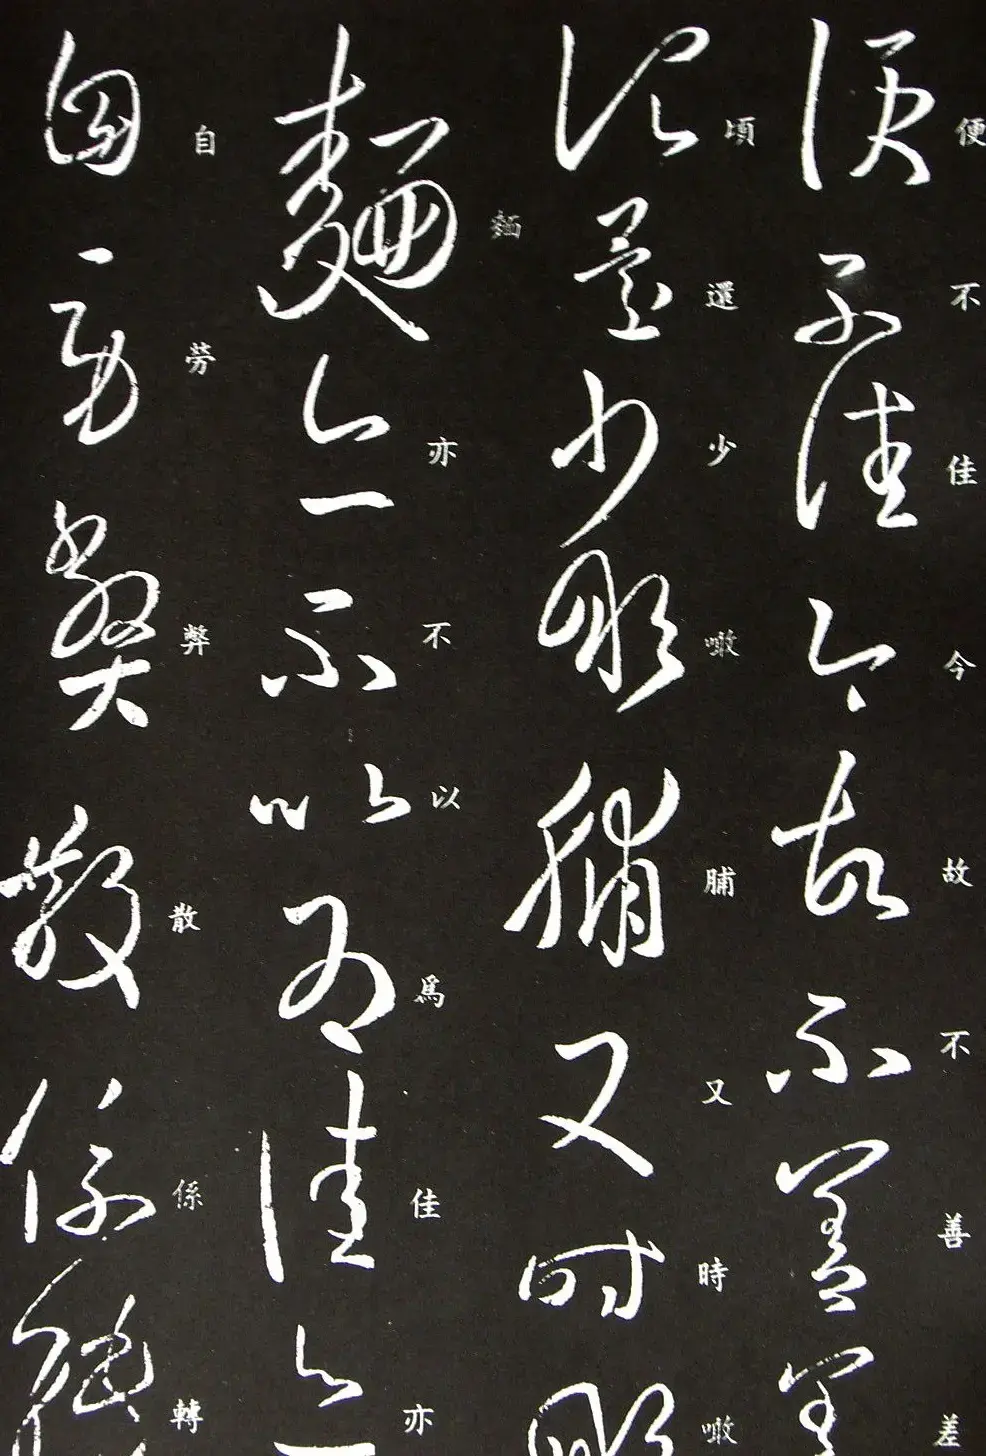 便不佳今故不善差
頃還少噉脯又時噉
麵亦不以為佳亦
自勞弊散係轉